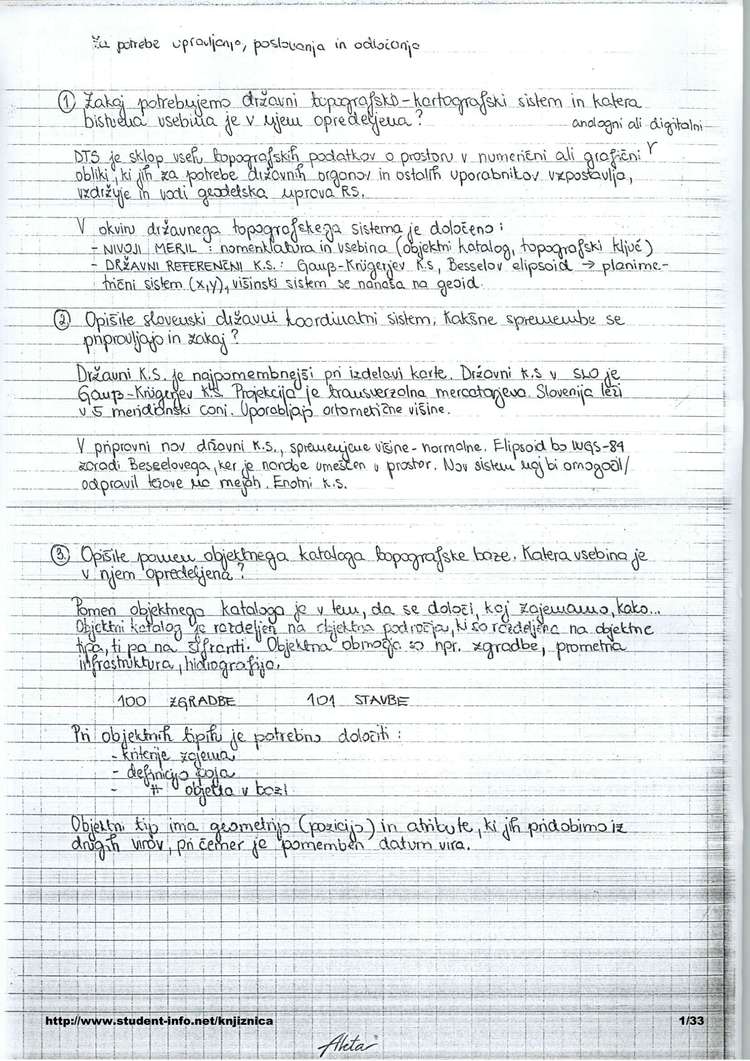 Za potrebe upravljanja, poslovanja in odločanja
① Zakaj potrebujemo državni topografsko-kartografski sistem in katera
bistvena vsebina je v njem opredeljena?
analogni ali digitalni
DTS je sklop vseh topografskih podatkov o prostoru v numerični ali grafični
obliki, ki jih za potrebe državnih organov in ostalih uporabnikov vzpostavlja,
vzdržuje in vodi geodetska uprava RS.
V okviru državnega topografskega sistema je določeno:
- NIVOJI MERIL : nomenklatura in vsebina (objektni katalog, topografski ključ)
- DRŽAVNI REFERENČNI K.S.: Gauß-Krügerjev K.S, Besselov elipsoid → planime-
trični sistem (x,y), višinski sistem se nanaša na geoid.
② Opišite slovenski državni koordinatni sistem. Kakšne spremembe se
pripravljajo in zakaj?
Državni K.S. je najpomembnejši pri izdelavi karte. Državni K.S v SLO je
Gauß-Krügerjev K.S. Projekcija je transverzalna mercatorjeva. Slovenija leži
v 5 meridianski coni. Uporabljajo ortometrične višine.
V pripravi nov državni K.S., spremenjene višine - normalne. Elipsoid bo WGS-84
zaradi Besselovega, ker je narobe umeščen v prostor. Nov sistem naj bi omogočil/
odpravil težave na mejah. Enotni K.S.
③ Opišite pomen objektnega kataloga topografske baze. Katera vsebina je
v njem opredeljena?
Pomen objektnega kataloga je v tem, da se določi, kaj zajemamo, kako...
Objektni katalog je razdeljen na objektna področja, ki so razdeljena na objektne
tipa, ti pa na šifranti. Objektna območja so npr. zgradbe, prometna
infrastruktura, hidrografija.
100 ZGRADBE 101 STAVBE
Pri objektnih tipih je potrebno določiti :
- kriterije zajema
- definicijo polja
- # objekta v bazi
Objektni tip ima geometrijo (pozicijo) in atribute, ki jih pridobimo iz
drugih virov, pri čemer je pomemben datum vira.
http://www.student-info.net/knjiznica
1/33